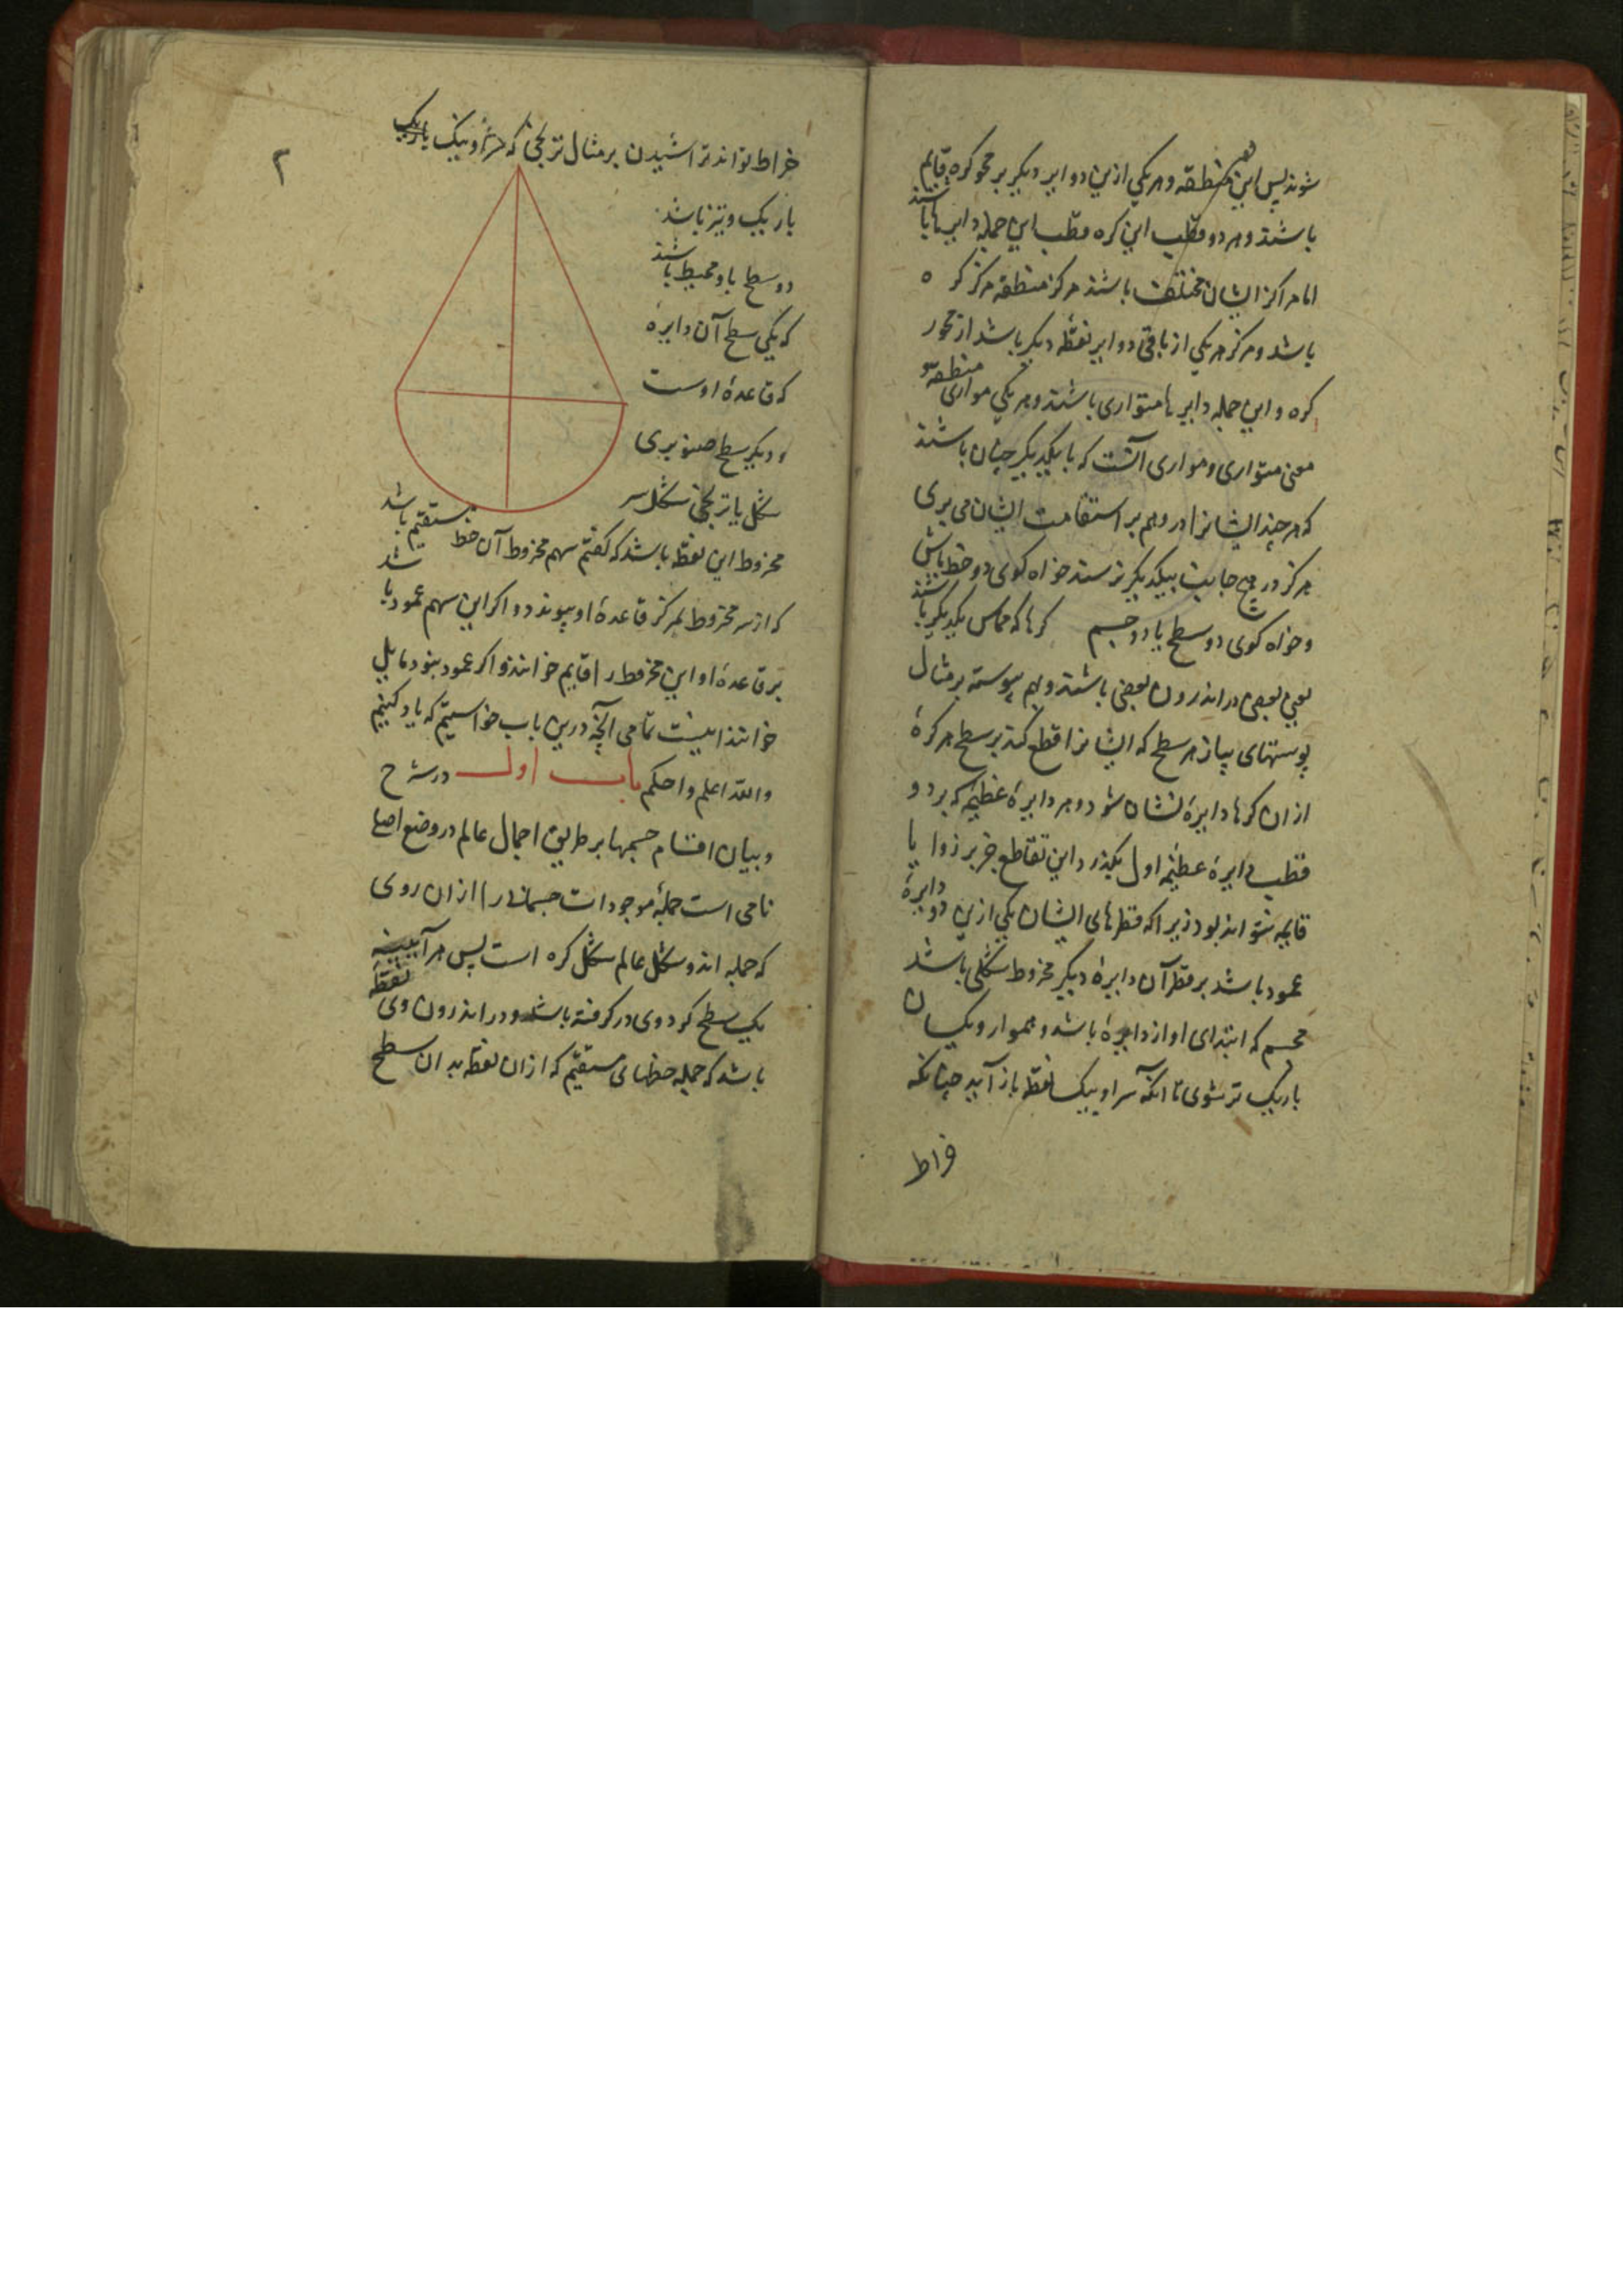 شوند پس این منطقه و هر یکی ازین دوایر دیگر بر محور کره قایم
باشند و هر دو قطب این کره قطب این جمله دایرها باشند
اما مراکز ایشان مختلف باشند مرکز منطقه مرکز کره
باشد و مرکز هر یکی از باقی دوایر نقطهٔ دیگر باشد از محور
کره و این جمله دایرها متوازی باشند و هر یکی موازی منطقه
معنی متوازی و موازی آنست که با یکدیگر چنان باشند
که هر چند ایشانرا در وهم بر استقامت ایشان می بری
هرگز در هیچ جانب بیکدیگر نرسند خواه کوی دو خط باش
و خواه کوی دو سطح یا دو جسم کرها که مماس یکدیگر باشند
یعنی بعضی در اندرون بعضی باشند و بهم پیوسته بر مثال
پوستهای پیاز هر سطح که ایشانرا قطع کند بر سطح هر کرهٔ
از ان کرها دایرهٔ نشان شود و هر دایرهٔ عظیمه که بر دو
قطب دایرهٔ عظیمهٔ اول بگذرد این تقاطع جز بر زوایا
قایمه نتواند بود زیرا که قطرهای ایشان یکی ازین دو دایرهٔ
عمود باشد بر قطر آن دایرهٔ دیگر مخروط شکلی باشد
مجسم که ابتدای او از دایرهٔ باشد و هموار و یکسان
باریک تر شوی تا انکه سر او بیک نقطه باز آید چنانکه
خراط
۲
خراط تواند تراشیدن بر مثال ترنجی که سر او نیک باریک
باریک و تیز باشد
دو سطح باو محیط باشند
که یکی سطح آن دایرهٔ
که قاعدهٔ اوست
و دیگر سطح صنوبری
شکل یا ترنجی شکل سر
مخروط این نقطه باشد که کفتم سهم مخروط آن خط مستقیم باشد
که از سر مخروط بمرکز قاعدهٔ او پیوندد و اکر این سهم عمود باشد
بر قاعدهٔ او این مخروط را قایم خوانند و اکر عمود نبود مایل
خوانند اینست تمامی آنچه درین باب خواستیم که یاد کنیم
والله اعلم و احکم باب اول در شرح
و بیان اقسام جسمها بر طریق اجمال عالم در وضع اصطلا
نامی است جملهٔ موجودات جسمانی را ازان روی
که جمله اند و شکل عالم شکل کره است پس هر آیینه
یک سطح کرد وی در کرفته باشد و در اندرون وی نقطهٔ
باشد که جمله خطهای مستقیم که ازان نقطه بدان سطح